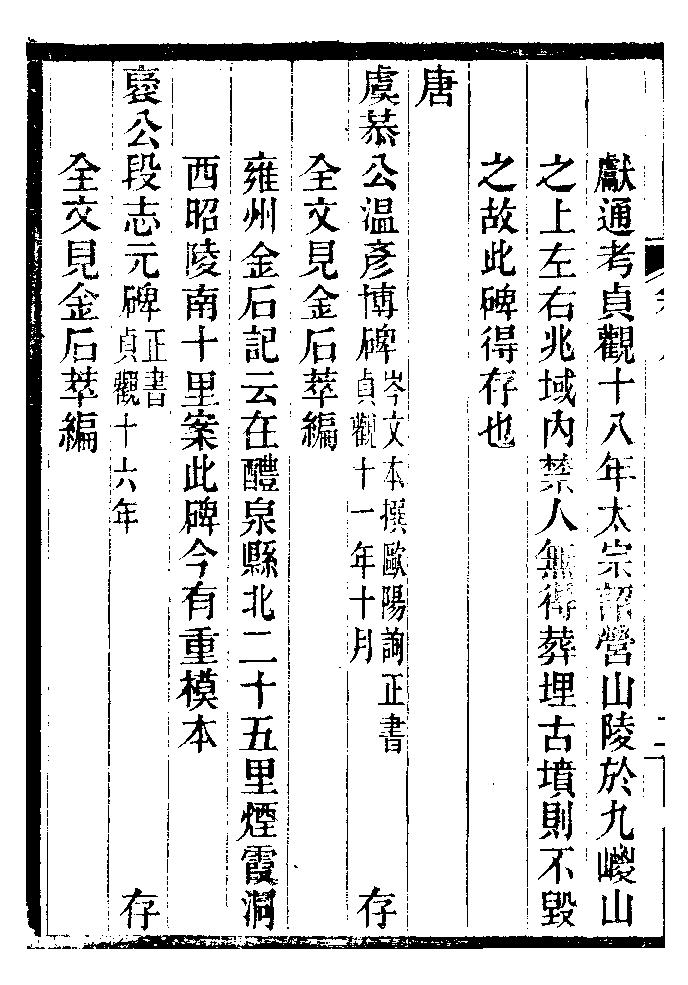 獻通考貞觀十八年太宗詔營山陵於九嵕山
之上左右兆域內禁人無得葬埋古墳則不毀
之故此碑得存也
唐
虞恭公温彥博碑岑文本撰歐陽詢正書貞觀十一年十月 存
全文見金石萃編
雍州金石記云在醴泉縣北二十五里煙霞洞
西昭陵南十里案此碑今有重模本
襃公段志元碑正書貞觀十六年 存
全文見金石萃編